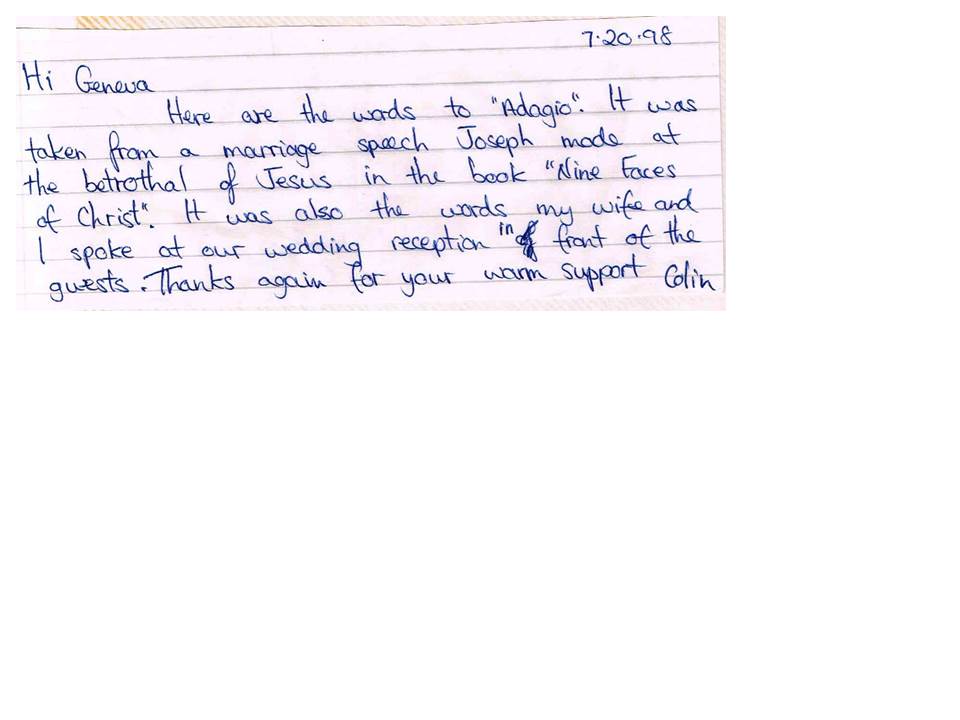 7.20.98
Hi Geneva
Here are the words to "Adagio". It was
taken from a marriage speech Joseph made at
the betrothal of Jesus in the book "Nine Faces
of Christ". It was also the words my wife and
I spoke at our wedding reception in front of the
guests. Thanks again for your warm support Colin